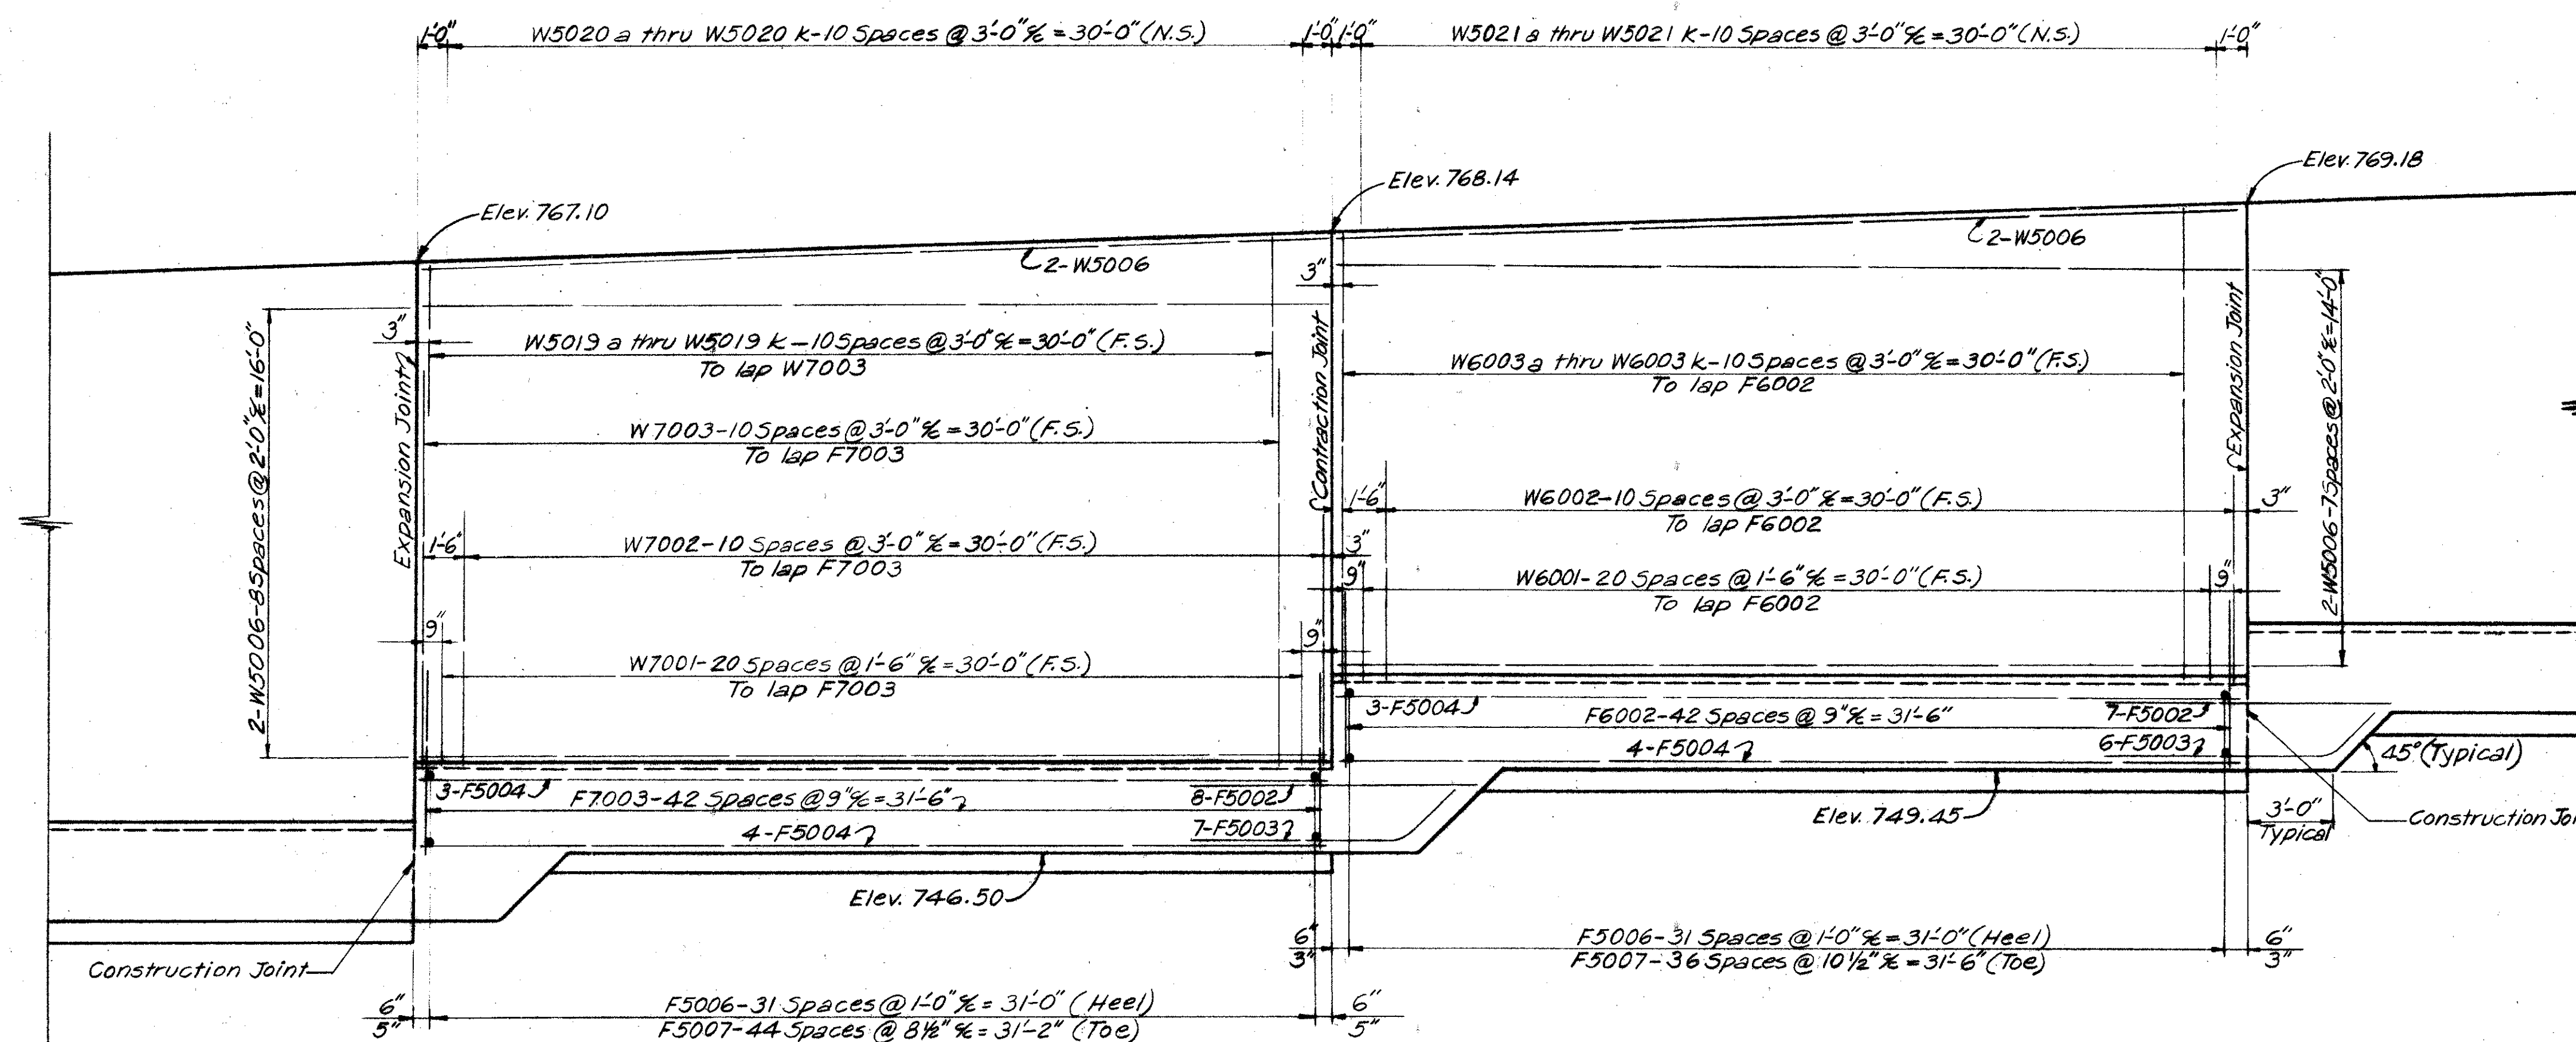 1'-0"
W5020 a thru W5020 k-10 Spaces @ 3'-0" ℄ = 30'-0" (N.S.)
1'-0"
1'-0"
W5021 a thru W5021 k-10 Spaces @ 3'-0" ℄ = 30'-0" (N.S.)
1'-0"
Elev. 767.10
Elev. 768.14
Elev. 769.18
2-W5006
2-W5006
2-W5006-8 Spaces @ 2'-0" ℄ = 16'-0"
3"
Expansion Joint
W5019 a thru W5019 k-10 Spaces @ 3'-0" ℄ = 30'-0" (F.S.)
To lap W7003
W7003-10 Spaces @ 3'-0" ℄ = 30'-0" (F.S.)
To lap F7003
1'-6"
W7002-10 Spaces @ 3'-0" ℄ = 30'-0" (F.S.)
To lap F7003
3"
9"
W7001-20 Spaces @ 1'-6" ℄ = 30'-0" (F.S.)
To lap F7003
9"
3"
Contraction Joint
W6003 a thru W6003 k-10 Spaces @ 3'-0" ℄ = 30'-0" (F.S.)
To lap F6002
1'-6"
W6002-10 Spaces @ 3'-0" ℄ = 30'-0" (F.S.)
To lap F6002
3"
9"
W6001-20 Spaces @ 1'-6" ℄ = 30'-0" (F.S.)
To lap F6002
9"
Expansion Joint
2-W5006-7 Spaces @ 2'-0" ℄ = 14'-0"
3-F5004
F7003-42 Spaces @ 9" ℄ = 31'-6"
8-F5002
4-F5004
7-F5003
Elev. 746.50
3-F5004
F6002-42 Spaces @ 9" ℄ = 31'-6"
7-F5002
4-F5004
6-F5003
45° (Typical)
Elev. 749.45
3'-0"
Typical
Construction Joi
Construction Joint
6"
3"
F5006-31 Spaces @ 1'-0" ℄ = 31'-0" (Heel)
F5007-36 Spaces @ 10 1/2" ℄ = 31'-6" (Toe)
6"
3"
6"
5"
F5006-31 Spaces @ 1'-0" ℄ = 31'-0" (Heel)
F5007-44 Spaces @ 8 1/2" ℄ = 31'-2" (Toe)
6"
5"